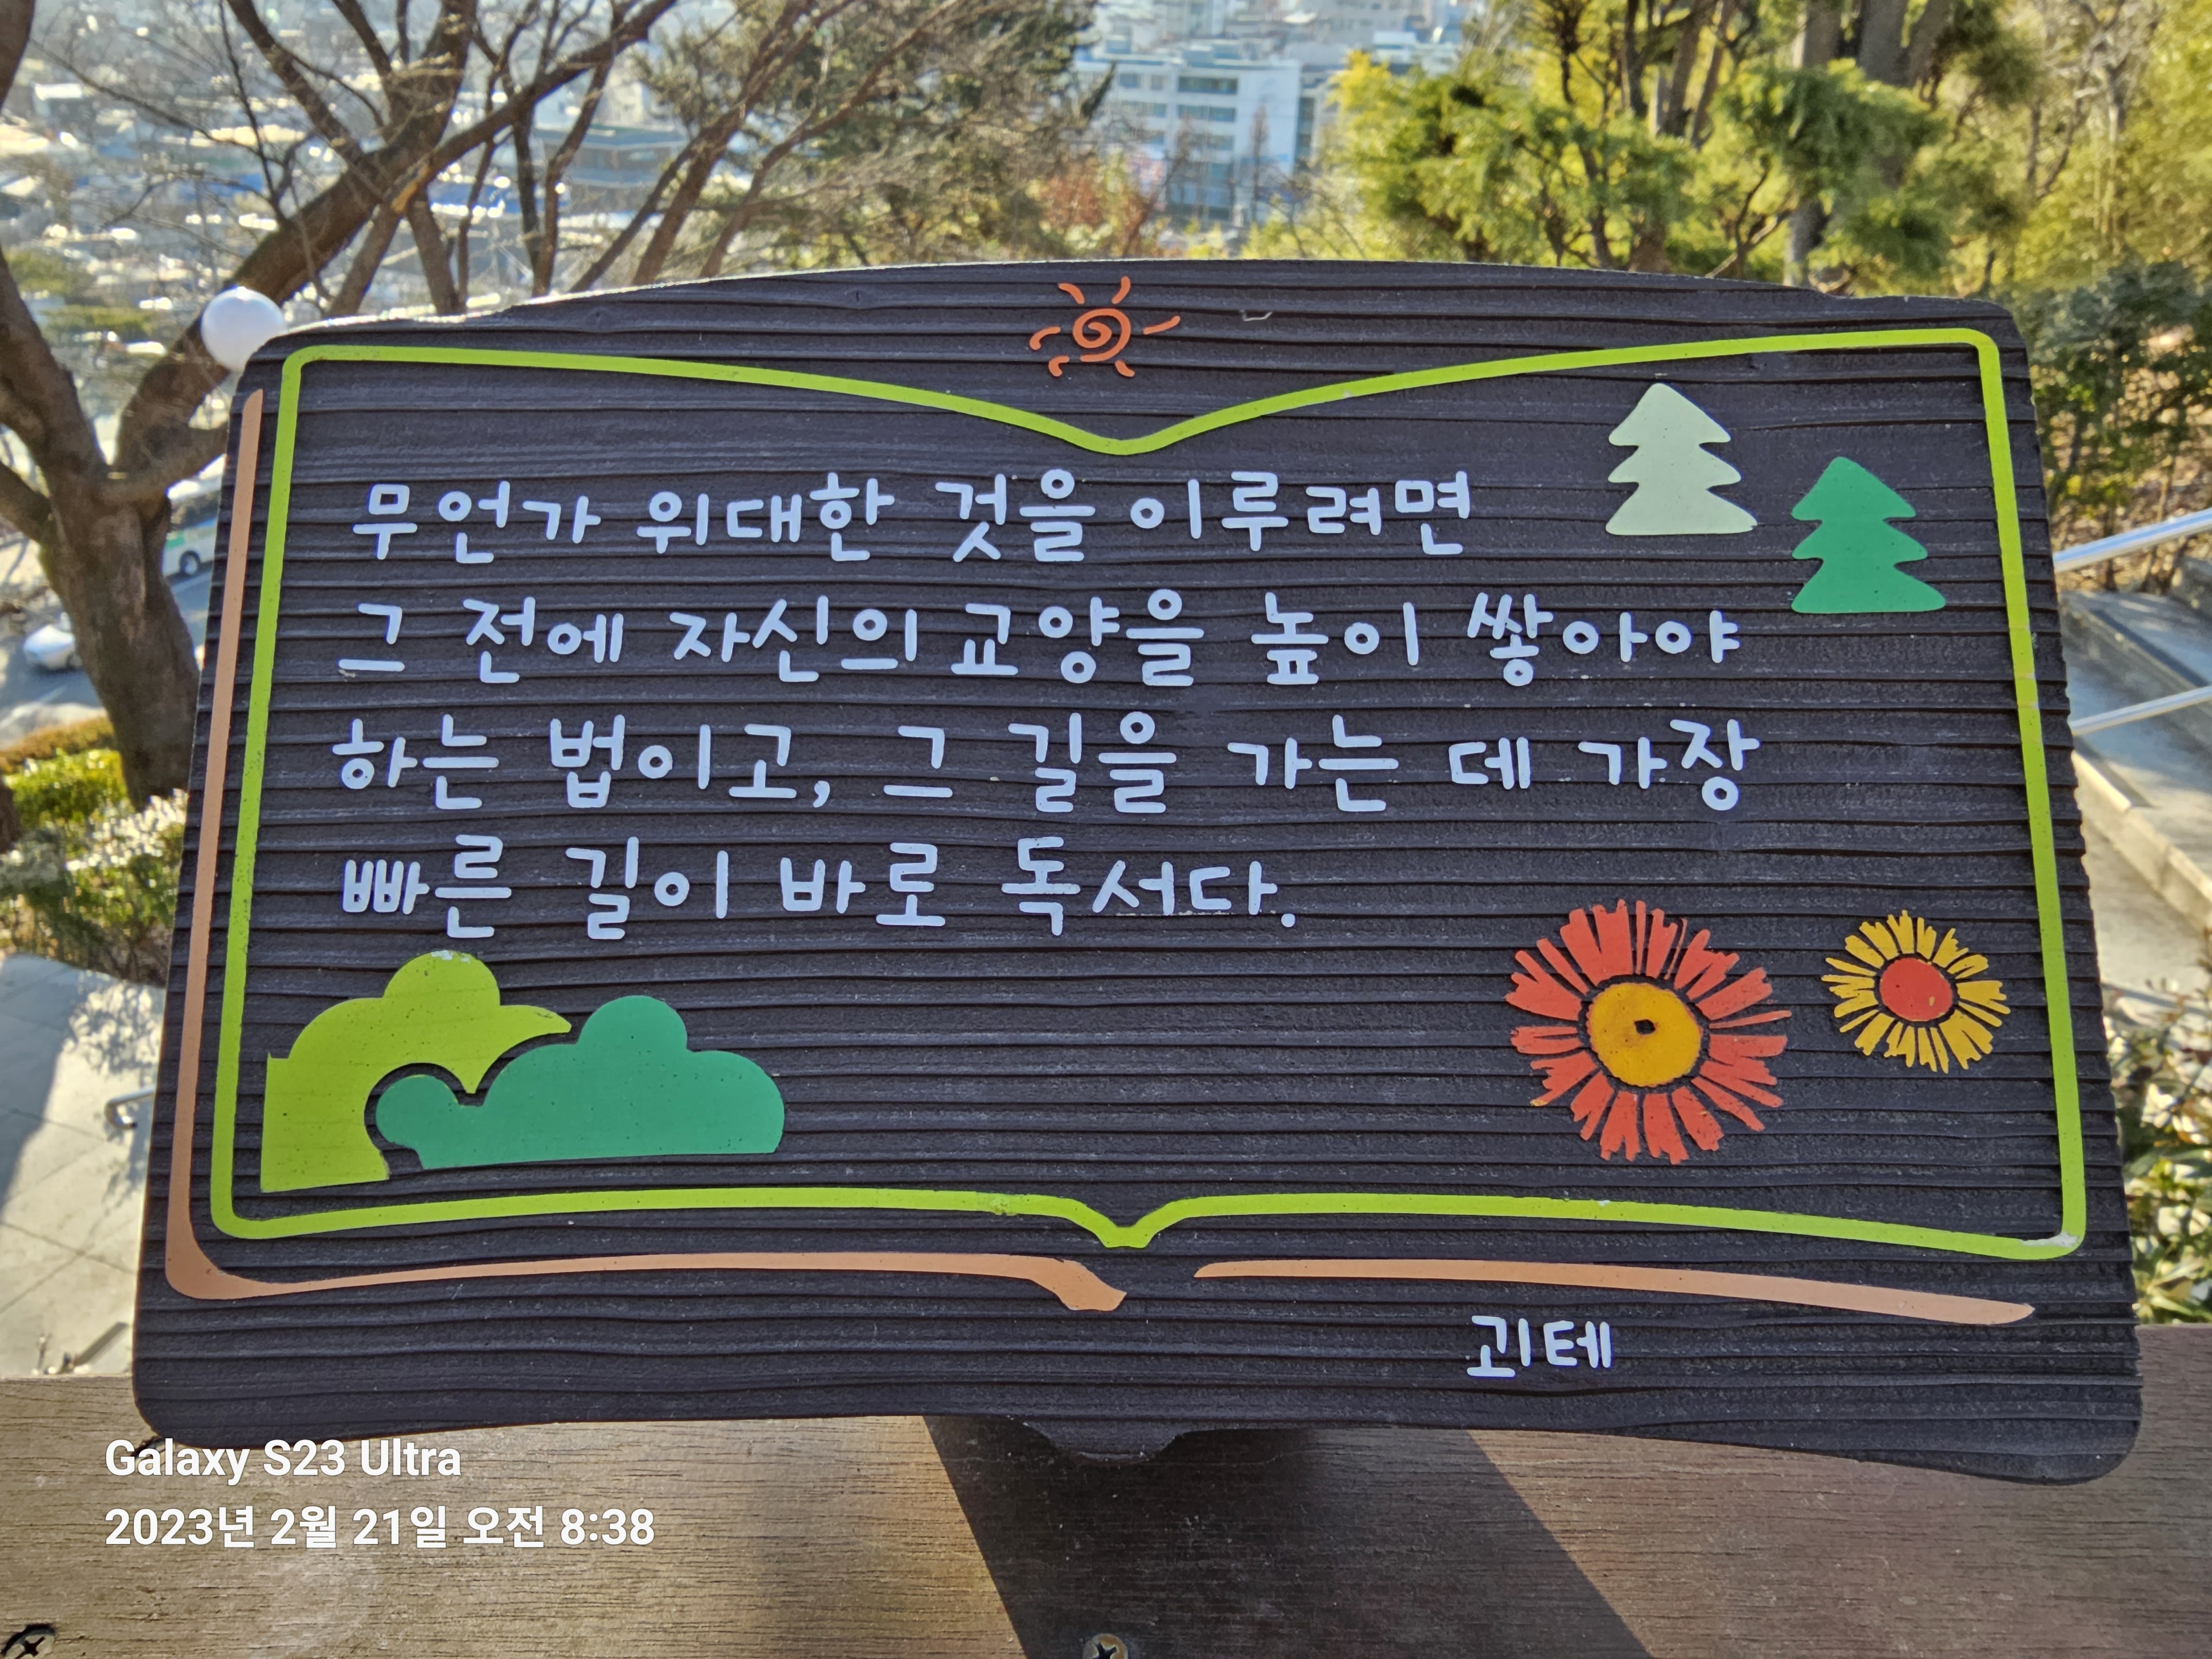 무언가 위대한 것을 이루려면
그 전에 자신의 교양을 높이 쌓아야
하는 법이고, 그 길을 가는 데 가장
빠른 길이 바로 독서다.
괴테
Galaxy S23 Ultra
2023년 2월 21일 오전 8:38